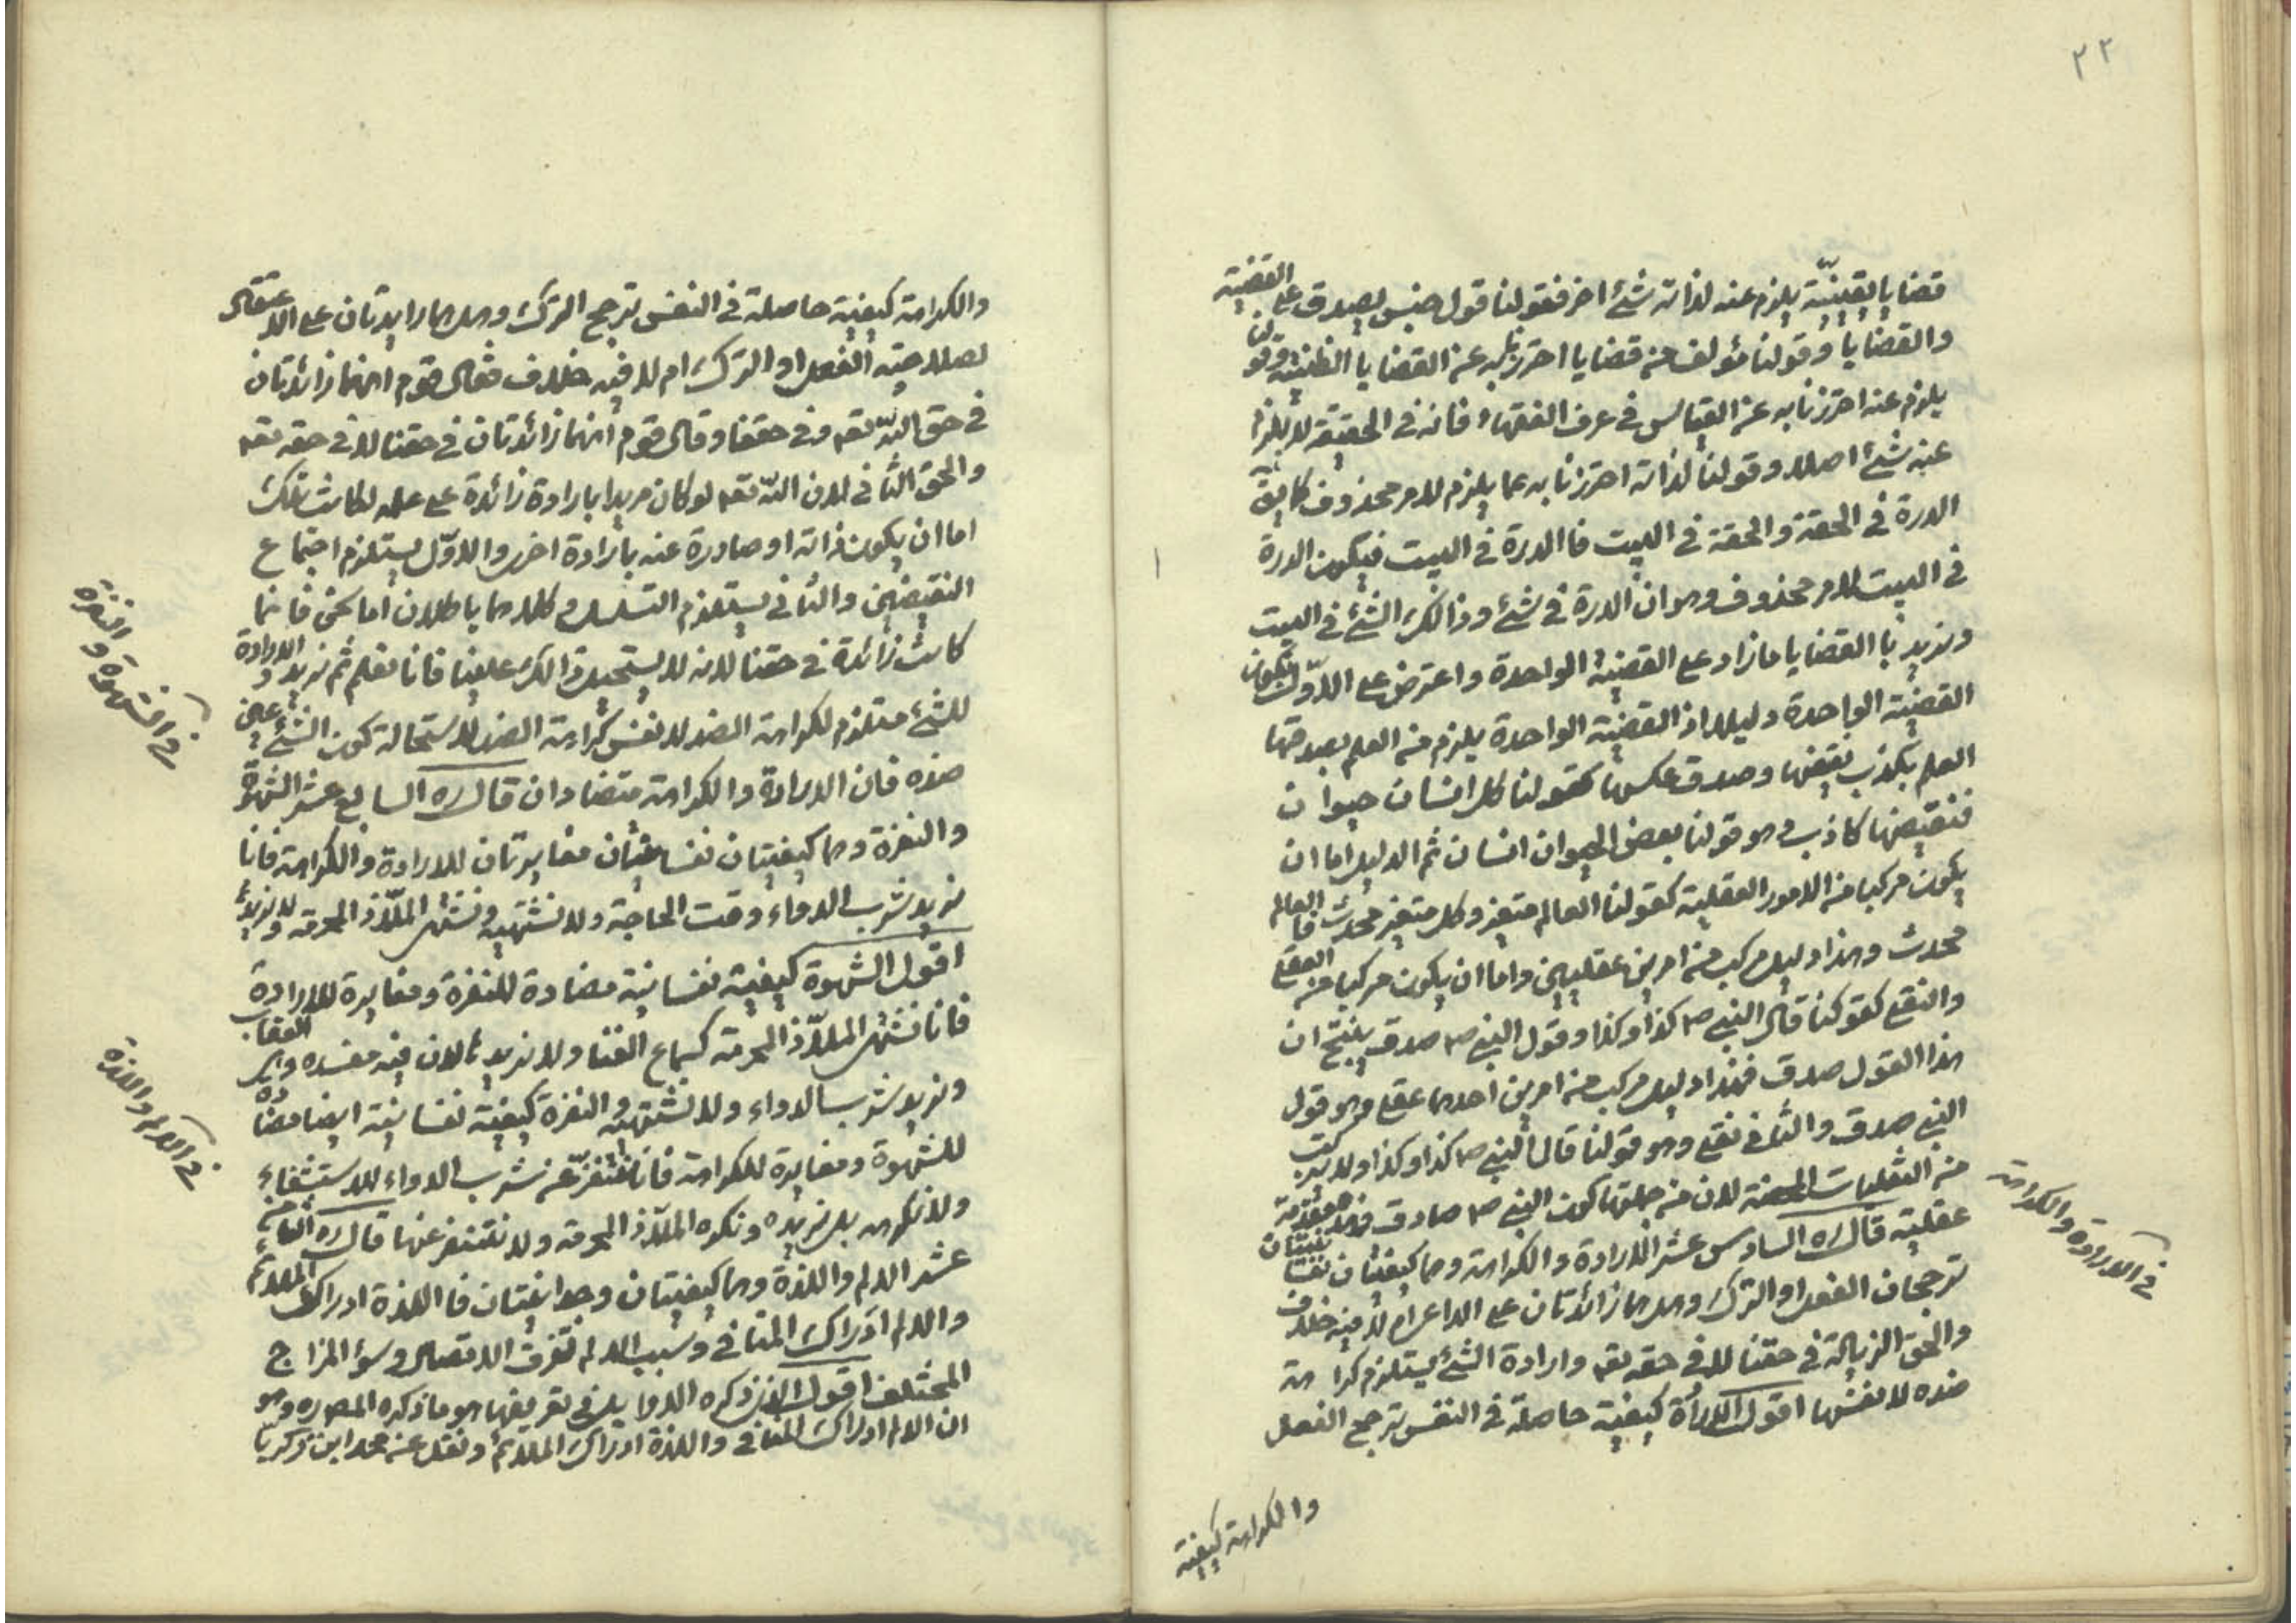 ٢٢
قضايا يقينيّة يلزم عنه لذاته شئ اخر فقولنا قول جنس يصدق على القضية
والقضايا وقولنا مؤلف من قضايا احترز به عن القضايا الظنية وقولنا
يلزم عنه احترزنا به عن القياس في عرف الفقهاء فانه في الحقيقة لا يلزم
عنه شئ اصلا وقولنا لذاته احترزنا به عما يلزم لامر محذوف كما
الدرة في الحقة والحقة في البيت فالدرة في البيت فيكون الدرة
في البيت لامر محذوف وهو ان الدرة في شئ وذالك الشئ في البيت
ونريد با القضايا ما زاد على القضية الواحدة واعترض على الاوّل بكون
القضية الواحدة دليلا اذ القضية الواحدة يلزم من العلم بصدقها
العلم بكذب نقيضها وصدق عكسها كقولنا كل انسان حيوان
فنقيضها كاذب وهو قولنا بعض الحيوان انسان ثم الدليل اما ان
يكون مركبا من الامور العقلية كقولنا العالم متغير وكل متغير محدث فا العالم
محدث وهذا دليل مركب من امرين عقليين واما ان يكون مركبا من العقلي
والنقلي كقولنا قال النبي ص كذا وكذا وقول النبي ص صدق ينتج ان
هذا القول صدق فهذا دليل مركب من امرين احدهما عقلي وهو قول
النبي صدق والثاني نقلي وهو قولنا قال النبي ص كذا وكذا ولا يتركب
من النقليات المحضة لان من جملتها كون النبي ص صادق وهذه مقدمة
عقلية قال ره السادس عشر الارادة والكراهة وهما كيفيتان نفسانيتان
ترجحان الفعل او الترك وهل هما زائدتان على الداعي ام لا فيه خلاف
والحق الزيادة في حقنا لا في حقه تعه وارادة الشئ يستلزم كراهة
ضده لا نفسها اقول الارادة كيفية حاصلة في النفس ترجح الفعل
والكراهة كيفية
في الارادة والكراهة
والكراهة كيفية حاصلة في النفس ترجح الترك وهل هما زايدتان على الاعتقاد
لصلاحية الفعل او الترك ام لا فيه خلاف فقال قوم انهما زائدتان
في حق اللّه تعه وفي حقنا وقال قوم انهما زائدتان في حقنا لا في حقه تعه
والحق الثاني لان اللّه تعه لو كان مريدا بارادة زائدة على علمه لكانت تلك
اما ان يكون لذاته او صادرة عنه بارادة اخرى والاوّل يستلزم اجتماع
النقيضين والثاني يستلزم التسلسل وكلاهما باطلان اما نحن فانما
كانت زائدة في حقنا لانه لا يستحيل ذالك علينا فانا نعلم ثم نريد والارادة
للشئ مستلزم لكراهة الضد لا نفس كراهة الضد لاستحالة كون الشئ عين
ضده فان الارادة والكراهة متضادان قال ره السابع عشر الشهوة
والنفرة وهما كيفيتان نفسانيتان مغايرتان للارادة والكراهة فانا
نريد شرب الدواء وقت الحاجة ولا نشتهيه ونشتهى الملاّذ المحرمة ولا نريد
اقول الشهوة كيفية نفسانية مضادة للنفرة ومغايرة للارادة
فانا نشتهى الملاّذ المحرمة كسماع الغنا ولا نريد لان فيه مفسده وهى العقاب
ونريد شرب الدواء ولا نشتهيه والنفرة كيفية نفسانية ايضا مضادة
للشهوة ومغايرة للكراهة فانا نتنفّر عن شرب الدواء للاستشفاء
ولا نكرهه بل نريده ونكره الملاّذ المحرمة ولا نتنفر عنها قال ره الثامن
عشر الالم واللذة وهما كيفيتان وجدانيتان فا اللذة ادراك الملائم
والالم ادراك المنافى وسبب الالم تفرق الاتصال وسؤ المزاج
المختلف اقول الذى ذكره الاوايل في تعريفها هو ما ذكره المص ره وهو
ان الالم ادراك المنافى واللذة ادراك الملائم ونقل عن محمد ابن زكريّا
في الشهوة والنفرة
في الالم واللذة